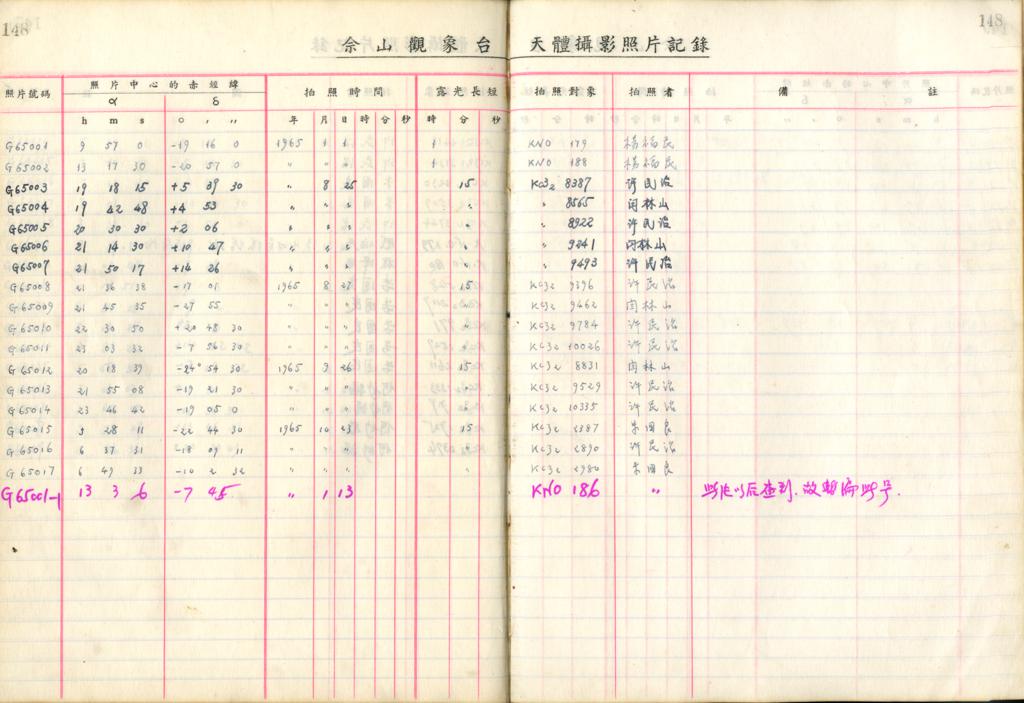 148 148
佘山觀象台 天體攝影照片記錄
照片號碼 照片中心的赤經緯 拍照時間 露光長短 拍照對象 拍照者 備註
α δ
h m s ° ′ ″ 年 月 日 時 分 秒 時 分 秒
G65001 9 57 0 -19 16 0 1965 1 1 1 KNO 179 楊福民
G65002 13 17 30 -20 57 0 " " " 1 KNO 188 楊福民
G65003 19 18 15 +5 39 30 " 8 25 15 KC32 8387 许民治
G65004 19 42 48 +4 53 " " " " " 8565 闵林山
G65005 20 30 30 +2 06 " " " " " 8922 许民治
G65006 21 14 30 +10 47 " " " " " 9241 闵林山
G65007 21 50 17 +14 26 " " " " " 9493 许民治
G65008 21 36 38 -17 01 1965 8 27 15 KC32 9396 许民治
G65009 21 45 35 -27 55 " " " " KC32 9462 闵林山
G65010 22 30 50 +20 48 30 " " " " KC32 9784 许民治
G65011 23 03 32 -7 56 30 " " " " KC32 10026 许民治
G65012 20 18 39 -24° 54 30 1965 9 26 15 KC32 8831 闵林山
G65013 21 55 08 -19 21 30 " " " " KC32 9529 许民治
G65014 23 46 42 -19 05 0 " " " " KC32 10335 许民治
G65015 5 28 11 -22 44 30 1965 10 23 15 KC32 2387 朱国良
G65016 6 37 31 -18 09 11 " " " " KC32 2890 许民治
G65017 6 49 33 -10 2 32 " " " " KC32 2980 朱国良
G65001-1 13 3 6 -7 45 " 1 13 KNO 186 " 此片以后查到,故暂编此号.